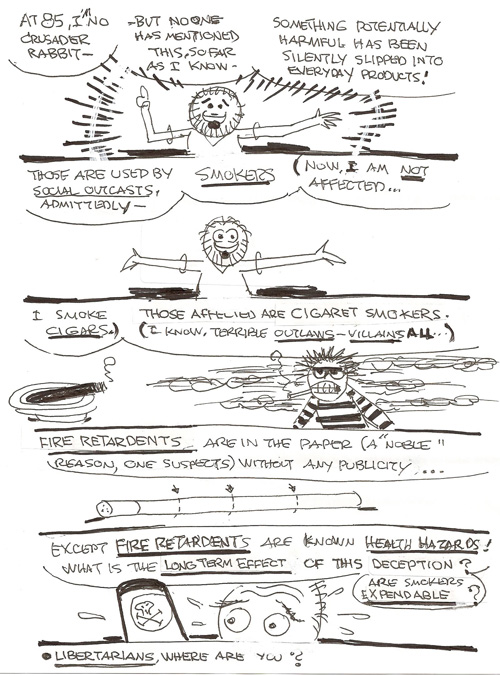 AT 85, I'M NO
CRUSADER
RABBIT—
-BUT NO ONE
HAS MENTIONED
THIS, SO FAR
AS I KNOW-
SOMETHING POTENTIALLY
HARMFUL HAS BEEN
SILENTLY SLIPPED INTO
EVERYDAY PRODUCTS!
THOSE ARE USED BY
SOCIAL OUTCASTS,
ADMITTEDLY—
SMOKERS
(NOW, I AM NOT
AFFECTED...
I SMOKE
CIGARS.)
THOSE AFFECTED ARE CIGARET SMOKERS.
(I KNOW, TERRIBLE OUTLAWS-VILLAINS ALL...)
FIRE RETARDENTS ARE IN THE PAPER (A "NOBLE"
REASON, ONE SUSPECTS) WITHOUT ANY PUBLICITY....
EXCEPT FIRE RETARDENTS ARE KNOWN HEALTH HAZARDS!
WHAT IS THE LONG TERM EFFECT OF THIS DECEPTION?
ARE SMOKERS
EXPENDABLE?
• LIBERTARIANS, WHERE ARE YOU?